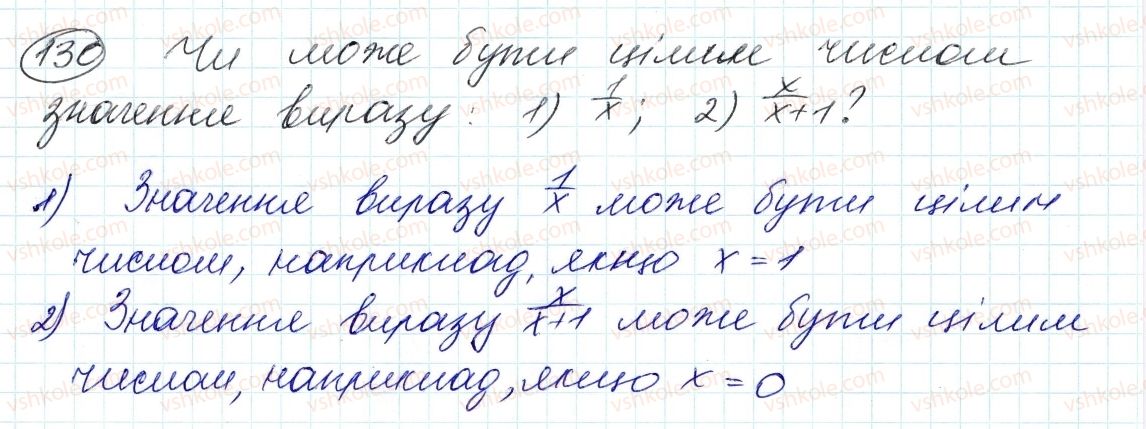 130 Чи може бути цілим числом
значення виразу: 1) 1/x; 2) x/x+1?
1) Значення виразу 1/x може бути цілим
числом, наприклад, якщо x = 1
2) Значення виразу x/x+1 може бути цілим
числом, наприклад, якщо x = 0